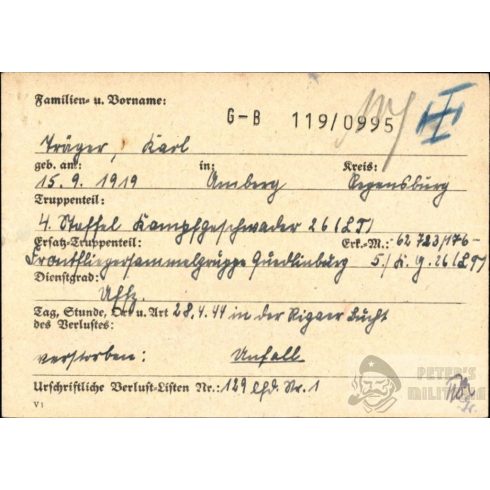 Familien- u. Vorname:
G-B 119/0995
Träger, Karl
geb. am: in: Kreis:
15.9.1919 Amberg Regensburg
Truppenteil:
4. Staffel Kampfgeschwader 26 (LT)
Ersatz-Truppenteil: Erk.-M.: 62 723/176-
Frontfliegersammelgruppe Quedlinburg 5./K.G.26(LT)
Dienstgrad:
Uffz.
Tag, Stunde, Ort u. Art 28.4.44 in der Rigaer Bucht
des Verlustes:
verstorben: Unfall
Urschriftliche Verlust-Listen Nr.: 129 lfd. Nr. 1
V1
PETER'S
MILITARIA